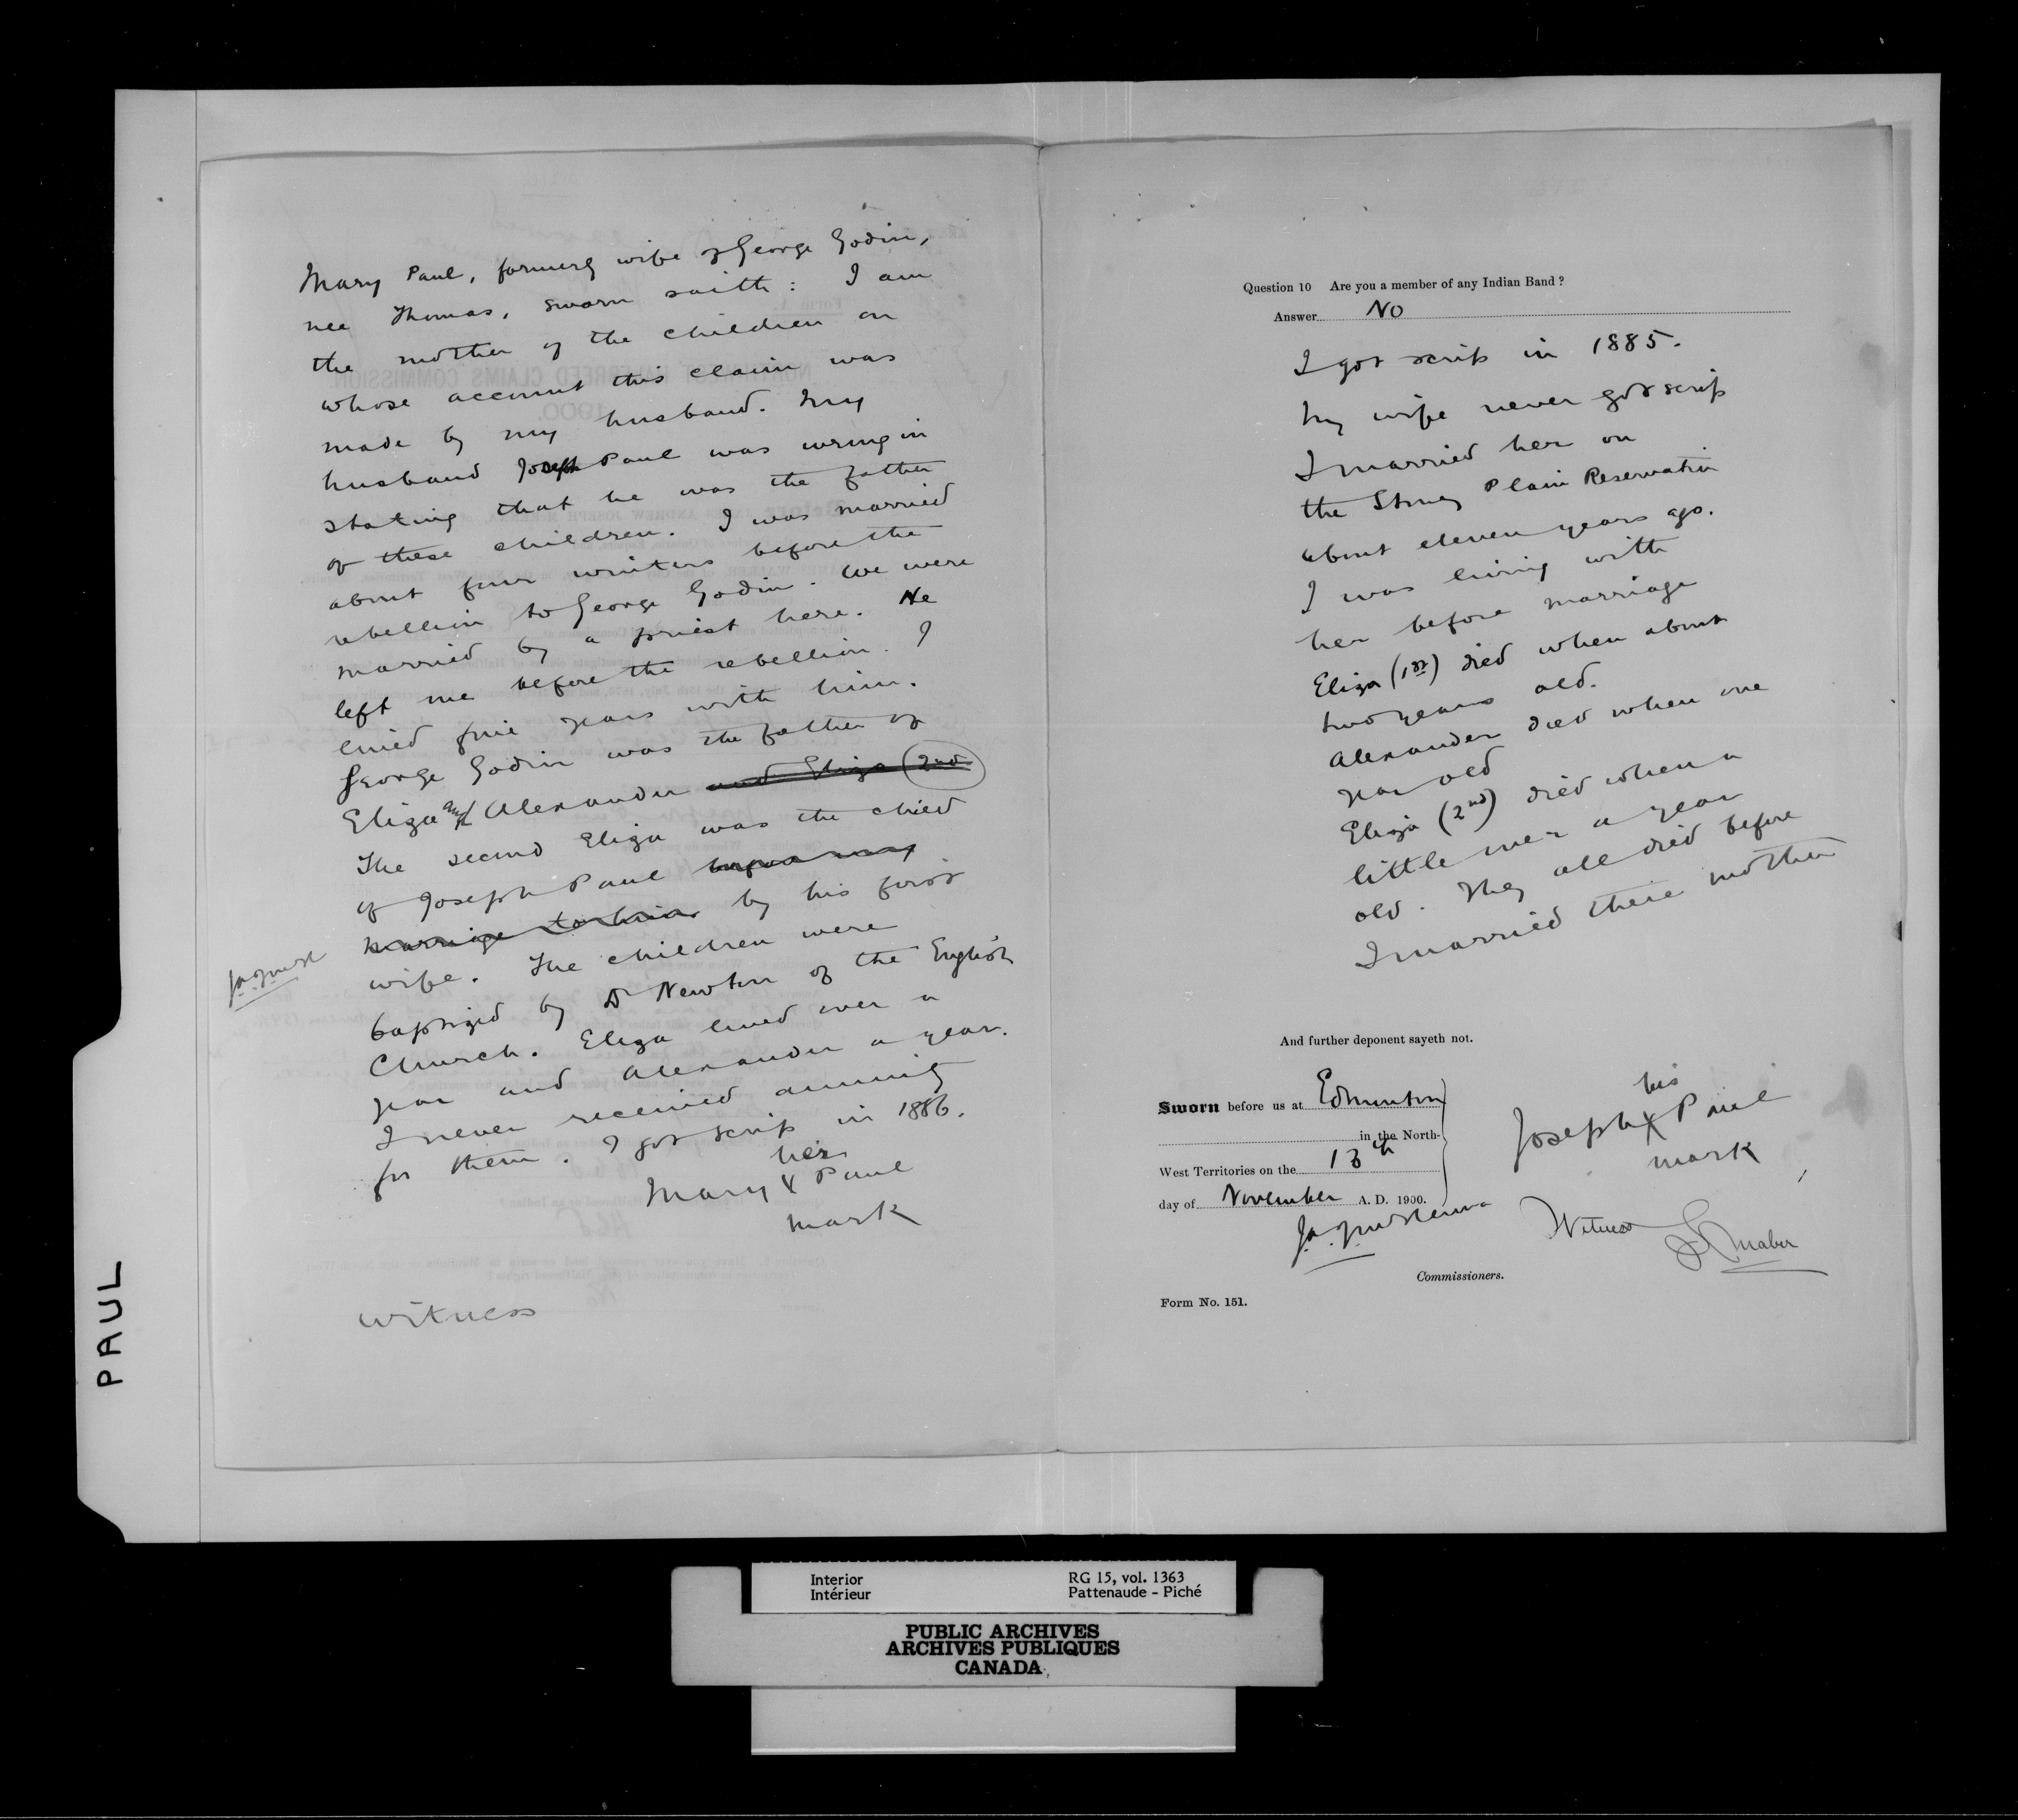 Mary Paul, formerly wife of George Godin,
nee Thomas, sworn saith: I am
the mother of the children on
whose account this claim was
made by my husband. My
husband Joseph Paul was wrong in
stating that he was the father
of these children. I was married
about four winters before the
rebellion to George Godin. We were
married by a priest here. He
left me before the rebellion. I
lived five years with him.
George Godin was the father of
Eliza and Alexander and Eliza (2nd
The second Eliza was the child
of Joseph Paul before my
marriage to him by his first
wife. The children were
baptized by Dr Newton of the English
Church. Eliza lived over a
year and Alexander a year.
I never received anything
for them. I got scrip in 1886.
her
Mary X Paul
mark
witness
PAUL
Question 10 Are you a member of any Indian Band?
Answer No
I got scrip in 1885.
My wife never got scrip
I married her on
the Stony Plain Reservation
about eleven years ago.
I was living with
her before marriage
Eliza (1st) died when about
two years old.
Alexander died when one
year old
Eliza (2nd) died when a
little over a year
old. They all died before
I married their mother
And further deponent sayeth not.
Sworn before us at Edmonton
in the North-
West Territories on the 13th
day of November A. D. 1900.
his
Joseph X Paul
mark
Witness
Commissioners.
Form No. 151.
Interior
Intérieur
RG 15, vol. 1363
Pattenaude - Piché
PUBLIC ARCHIVES
ARCHIVES PUBLIQUES
CANADA